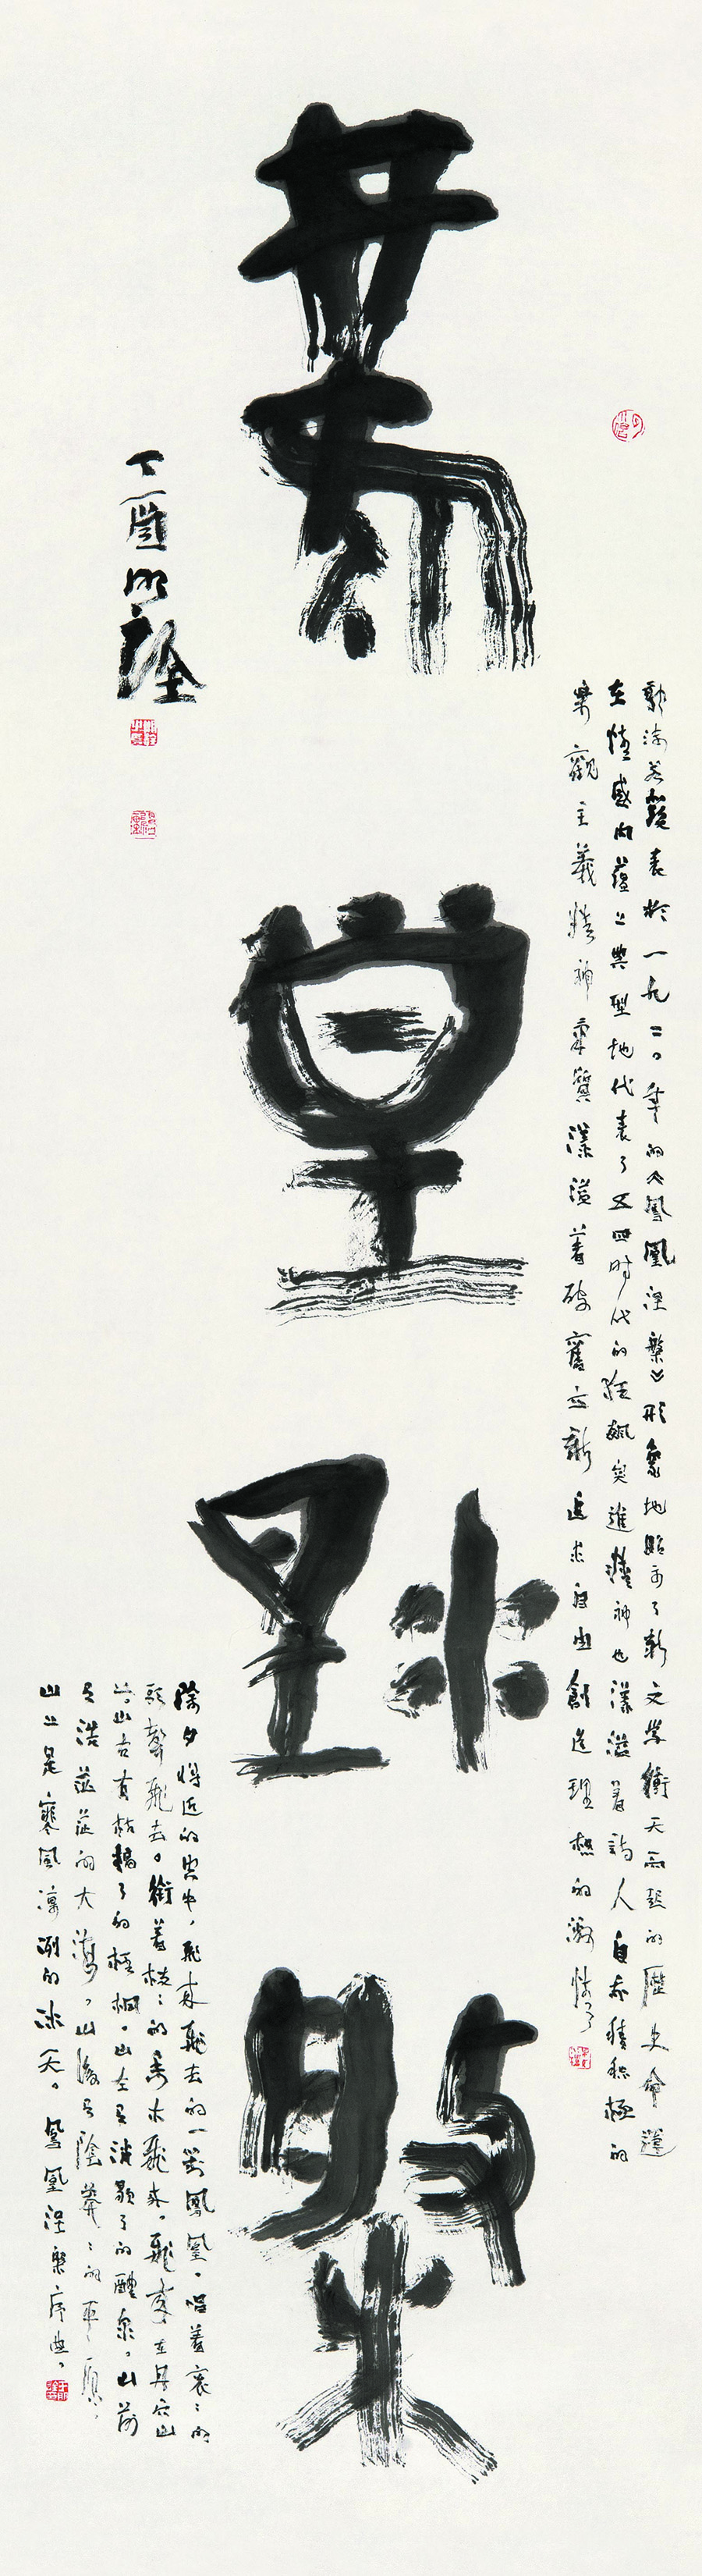 鳳皇涅槃
郭沫若發表於一九二〇年的《鳳凰涅槃》形象地昭示了新文學衝天而起的歷史命運
在情感内蘊上典型地代表了五四時代的狂飆突進精神也漾溢着詩人自我積極的
樂觀主義精神氣質漾溢着破舊立新追求自由創造理想的激情
丁酉明詮
除夕將近的空中，飛來飛去的一對鳳凰，唱着哀哀的
歌聲飛去。銜着枝枝的香木飛來，飛來在丹穴山
上。山右有枯槁了的梧桐，山左有消歇了的醴泉，山前
有浩茫茫的大海，山後有陰莽莽的平原，
山上是寒風凜冽的冰天。鳳凰涅槃序曲。